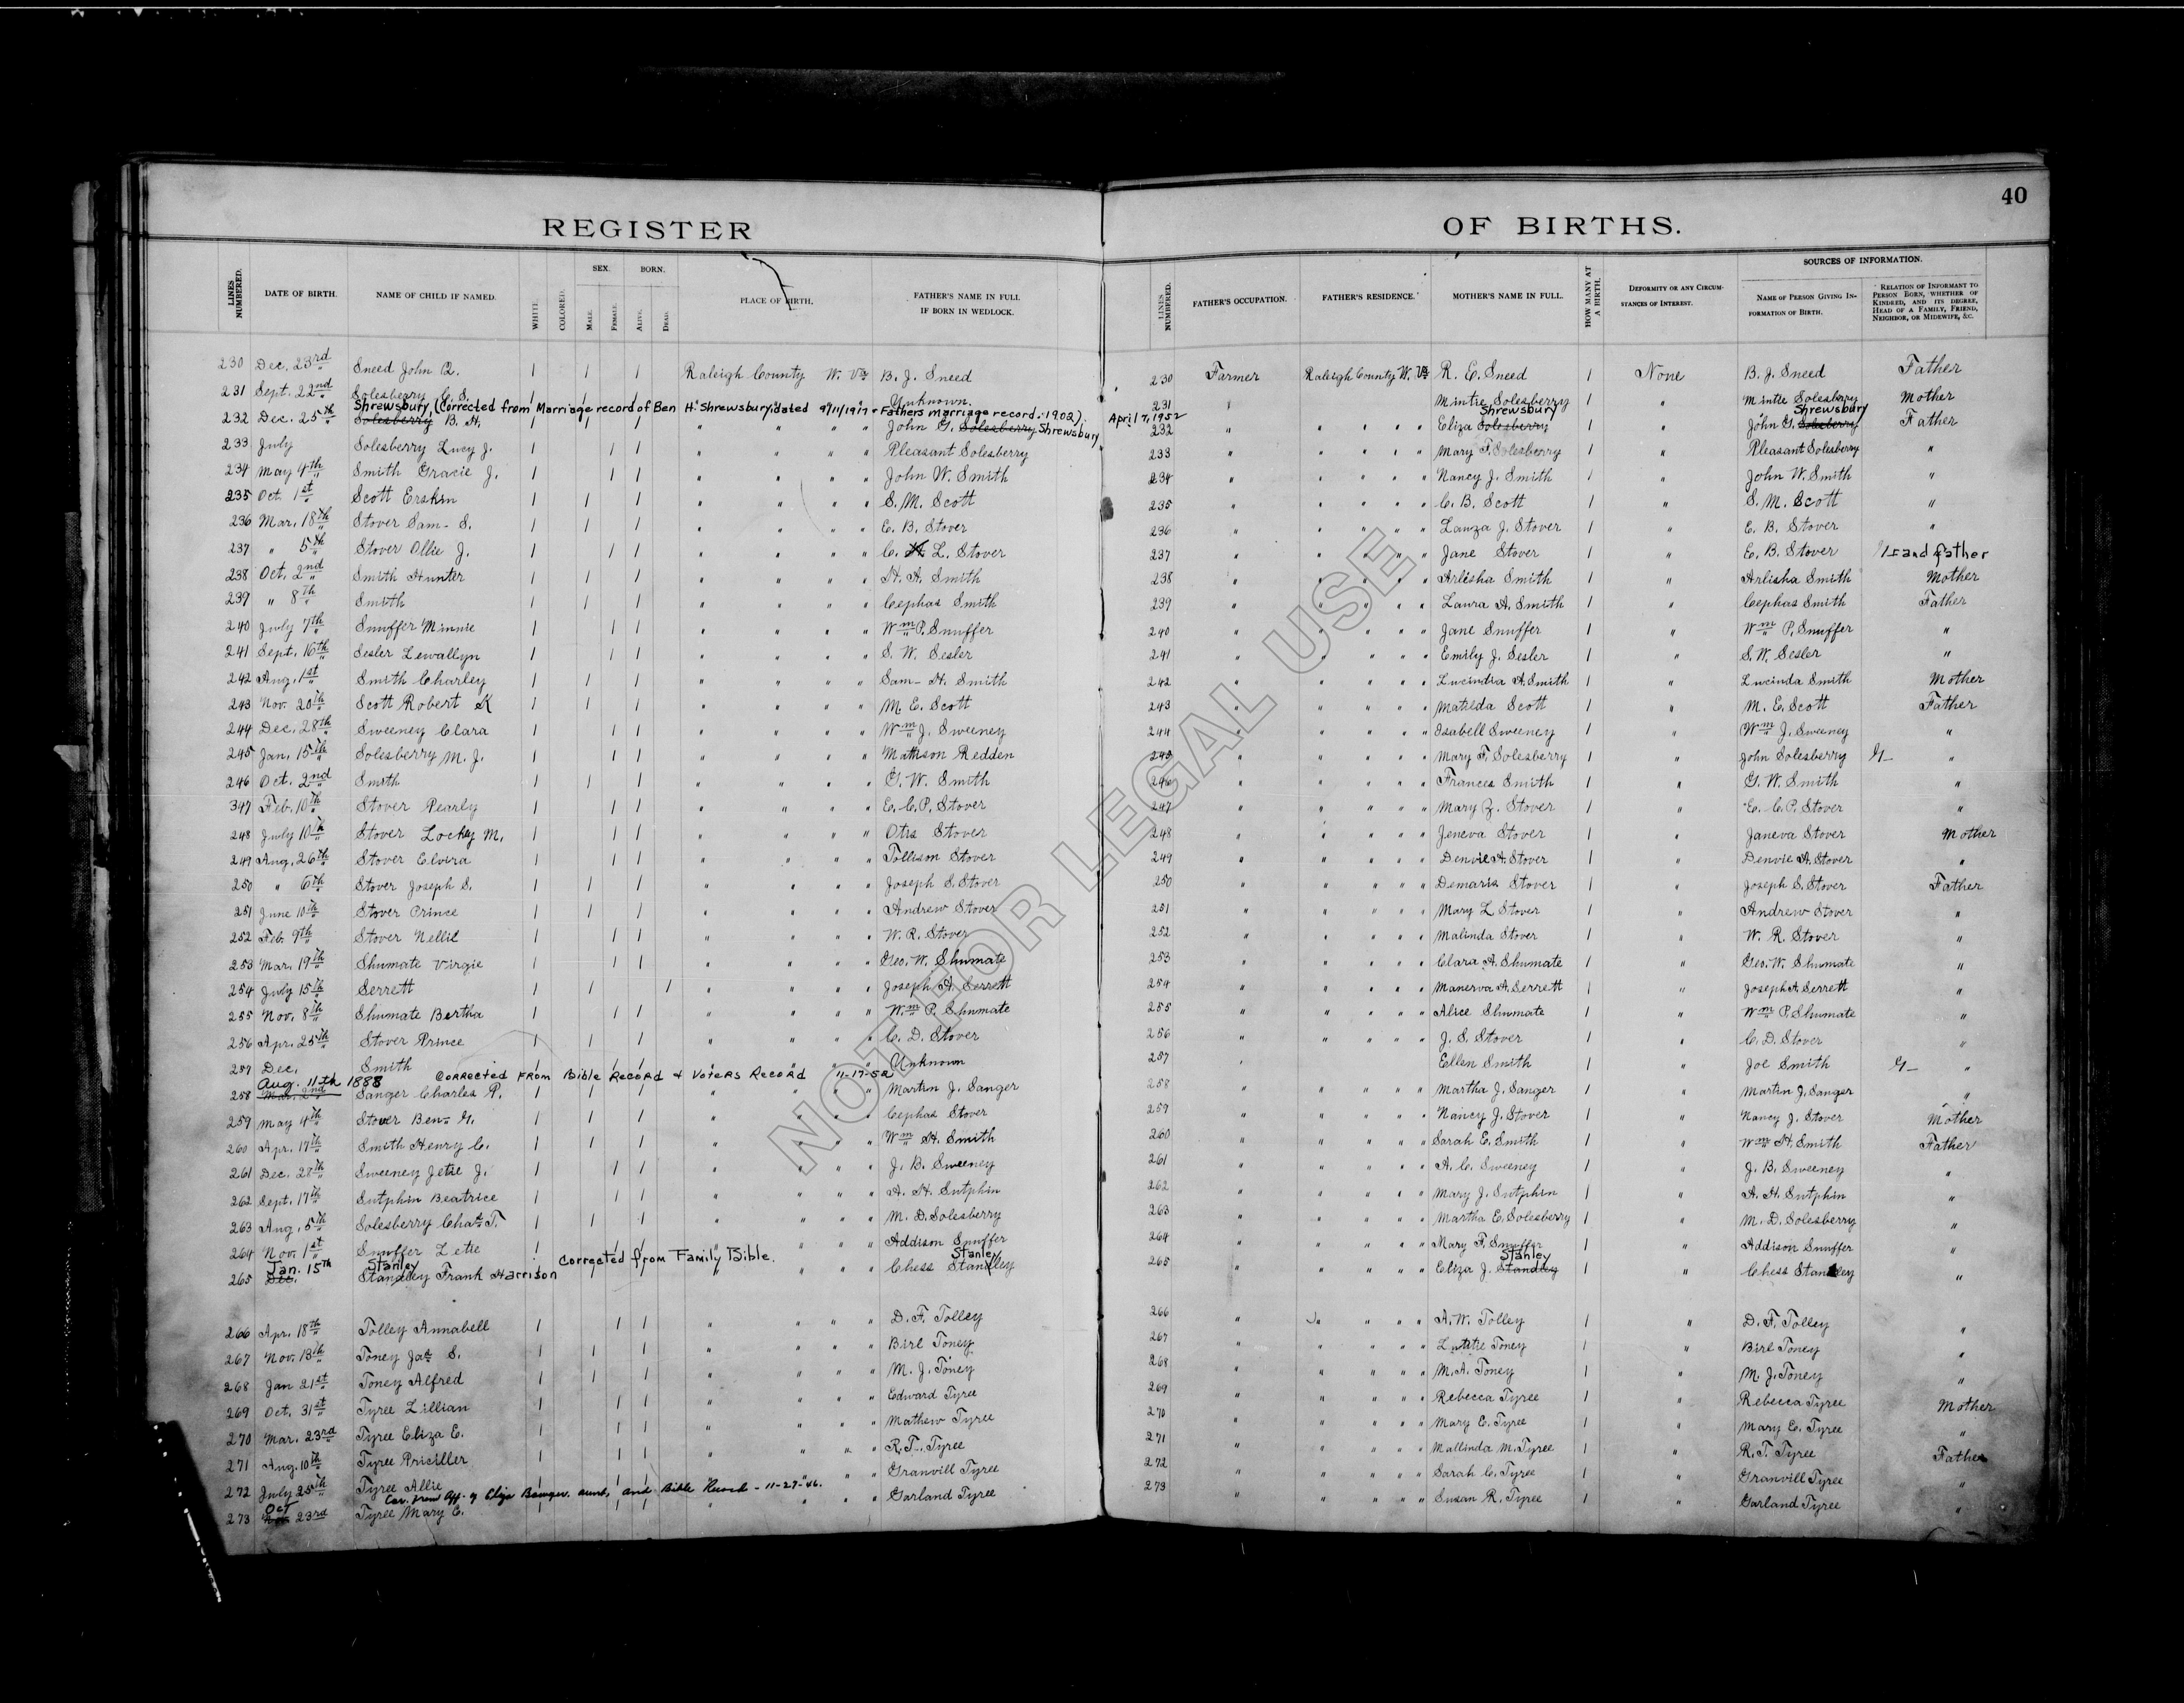 40
REGISTER OF BIRTHS.
LINES NUMBERED. DATE OF BIRTH. NAME OF CHILD IF NAMED. WHITE. COLORED. SEX. MALE. FEMALE. BORN. ALIVE. DEAD. PLACE OF BIRTH. FATHER'S NAME IN FULL IF BORN IN WEDLOCK. LINES NUMBERED. FATHER'S OCCUPATION. FATHER'S RESIDENCE. MOTHER'S NAME IN FULL. HOW MANY AT A BIRTH. DEFORMITY OR ANY CIRCUMSTANCES OF INTEREST. SOURCES OF INFORMATION. NAME OF PERSON GIVING INFORMATION OF BIRTH. RELATION OF INFORMANT TO PERSON BORN, WHETHER OF KINDRED, AND ITS DEGREE, HEAD OF A FAMILY, FRIEND, NEIGHBOR, OR MIDEWIFE, &C.
230 Dec. 23rd Sneed John Q. 1 1 1 Raleigh County W. Va B. J. Sneed 230 Farmer Raleigh County W. Va R. E. Sneed 1 None B. J. Sneed Father
231 Sept. 22nd Solesberry C. S. Unknown. 231 Mintie Solesberry 1 " Mintie Solesberry Mother
Shrewsbury (Corrected from Marriage record of Ben H. Shrewsbury dated 9/11/1917 + Fathers marriage record - 1902). April 7, 1952 Shrewsbury Shrewsbury
232 Dec. 25th Solesberry B. H. 1 1 1 " " " " John G. Solesberry Shrewsbury 232 " " " " " Eliza Solesberry 1 " John G. Solesberry Father
233 July Solesberry Lucy J. 1 1 1 " " " " Pleasant Solesberry 233 " " " " " Mary F. Solesberry 1 " Pleasant Solesberry "
234 May 4th Smith Gracie J. 1 1 1 " " " " John W. Smith 234 " " " " " Nancy J. Smith 1 " John W. Smith "
235 Oct. 1st Scott Erskin 1 1 1 " " " " S. M. Scott 235 " " " " " C. B. Scott 1 " S. M. Scott "
236 Mar. 18th Stover Sam- S. 1 1 1 " " " " E. B. Stover 236 " " " " " Lauza J. Stover 1 " E. B. Stover "
237 " 5th Stover Ollie J. 1 1 1 " " " " C. L. Stover 237 " " " " " Jane Stover 1 " E. B. Stover Grand father
238 Oct. 2nd Smith Hunter 1 1 1 " " " " H. A. Smith 238 " " " " " Arlisha Smith 1 " Arlisha Smith Mother
239 " 8th Smith 1 1 1 " " " " Cephas Smith 239 " " " " " Laura A. Smith 1 " Cephas Smith Father
240 July 7th Snuffer Minnie 1 1 1 " " " " Wm P. Snuffer 240 " " " " " Jane Snuffer 1 " Wm P. Snuffer "
241 Sept. 16th Sesler Lewallyn 1 1 1 " " " " S. W. Sesler 241 " " " " " Emily J. Sesler 1 " S. W. Sesler "
242 Aug. 1st Smith Charley 1 1 1 " " " " Sam- H. Smith 242 " " " " " Lucindia A. Smith 1 " Lucinda Smith Mother
243 Nov. 20th Scott Robert K 1 1 1 " " " " M. E. Scott 243 " " " " " Matilda Scott 1 " M. E. Scott Father
244 Dec. 28th Sweeney Clara 1 1 1 " " " " Wm J. Sweeney 244 " " " " " Isabell Sweeney 1 " Wm J. Sweeney "
245 Jan. 15th Solesberry M. J. 1 1 1 " " " " Mattison Redden 245 " " " " " Mary F. Solesberry 1 " John Solesberry G- "
246 Oct. 2nd Smith 1 1 1 " " " " G. W. Smith 246 " " " " " Frances Smith 1 " G. W. Smith "
347 Feb. 10th Stover Pearly 1 1 1 " " " " E. C. P. Stover 247 " " " " " Mary Z. Stover 1 " E. C. P. Stover "
248 July 10th Stover Lockey M. 1 1 1 " " " " Otis Stover 248 " " " " " Jeneva Stover 1 " Janeva Stover Mother
249 Aug. 26th Stover Elvira 1 1 1 " " " " Tollison Stover 249 " " " " " Denvie A. Stover 1 " Denvie A. Stover "
250 " 6th Stover Joseph S. 1 1 1 " " " " Joseph S. Stover 250 " " " " " Demaris Stover 1 " Joseph S. Stover Father
251 June 10th Stover Prince 1 1 1 " " " " Andrew Stover 251 " " " " " Mary L Stover 1 " Andrew Stover "
252 Feb. 9th Stover Nellie 1 1 1 " " " " W. R. Stover 252 " " " " " Malinda Stover 1 " W. R. Stover "
253 Mar. 19th Shumate Virgie 1 1 1 " " " " Geo. W. Shumate 253 " " " " " Clara A. Shumate 1 " Geo. W. Shumate "
254 July 15th Serrett 1 1 1 " " " " Joseph A. Serrett 254 " " " " " Manerva A. Serrett 1 " Joseph A. Serrett "
255 Nov. 8th Shumate Bertha 1 1 1 " " " " Wm P. Shumate 255 " " " " " Alice Shumate 1 " Wm P. Shumate "
256 Apr. 25th Stover Prince 1 1 1 " " " " C. D. Stover 256 " " " " " J. S. Stover 1 " C. D. Stover "
257 Dec. Smith 1 1 1 " " " " Unknown 257 Ellen Smith 1 " Joe Smith G- "
Aug. 11th 1888 Corrected from Bible Record & Voters Record 11-17-52
258 Mar. 2nd Sanger Charles P. 1 1 1 " " " " Martin J. Sanger 258 " " " " " Martha J. Sanger 1 " Martin J. Sanger "
259 May 4th Stover Ben- G. 1 1 1 " " " " Cephas Stover 259 " " " " " Nancy J. Stover 1 " Nancy J. Stover Mother
260 Apr. 17th Smith Henry C. 1 1 1 " " " " Wm H. Smith 260 " " " " " Sarah E. Smith 1 " Wm H. Smith Father
261 Dec. 28th Sweeney Jetie J. 1 1 1 " " " " J. B. Sweeney 261 " " " " " A. C. Sweeney 1 " J. B. Sweeney "
262 Sept. 17th Sutphin Beatrice 1 1 1 " " " " A. H. Sutphin 262 " " " " " Mary J. Sutphin 1 " A. H. Sutphin "
263 Aug. 5th Solesberry Chas T. 1 1 1 " " " " M. D. Solesberry 263 " " " " " Martha E. Solesberry 1 " M. D. Solesberry "
264 Nov. 1st Snuffer Letie 1 1 1 " " " " Addison Snuffer 264 " " " " " Mary F. Snuffer 1 " Addison Snuffer "
Jan. 15th Stanley Corrected from Family Bible. Stanley Stanley
265 Dec. Standley Frank Harrison 1 1 1 " " " " Chess Standley 265 " " " " " Eliza J. Standley 1 " Chess Stanley "
266 Apr. 18th Tolley Annabell 1 1 1 " " " " D. F. Tolley 266 " " " " " A. W. Tolley 1 " D. F. Tolley "
267 Nov. 13th Toney Jas S. 1 1 1 " " " " Birl Toney 267 " " " " " Toney 1 " Birl Toney "
268 Jan 21st Toney Alfred 1 1 1 " " " " M. J. Toney 268 " " " " " M. A. Toney 1 " M. J. Toney "
269 Oct. 31st Tyree Lillian 1 1 1 " " " " Edward Tyree 269 " " " " " Rebecca Tyree 1 " Rebecca Tyree Mother
270 Mar. 23rd Tyree Eliza E. 1 1 1 " " " " Mathew Tyree 270 " " " " " Mary E. Tyree 1 " Mary E. Tyree "
271 Aug. 10th Tyree Priciller 1 1 1 " " " " R. T. Tyree 271 " " " " " Mallinda M. Tyree 1 " R. T. Tyree Father
272 July 25th Tyree Allie 1 1 1 " " " " Granvill Tyree 272 " " " " " Sarah C. Tyree 1 " Granvill Tyree "
Oct Cor. from Aff. of Eliza aunt, and Bible Record - 11-27-46.
273 Nov. 23rd Tyree Mary E. 1 1 1 " " " " Garland Tyree 273 " " " " " Susan R. Tyree 1 " Garland Tyree "
NOT FOR LEGAL USE